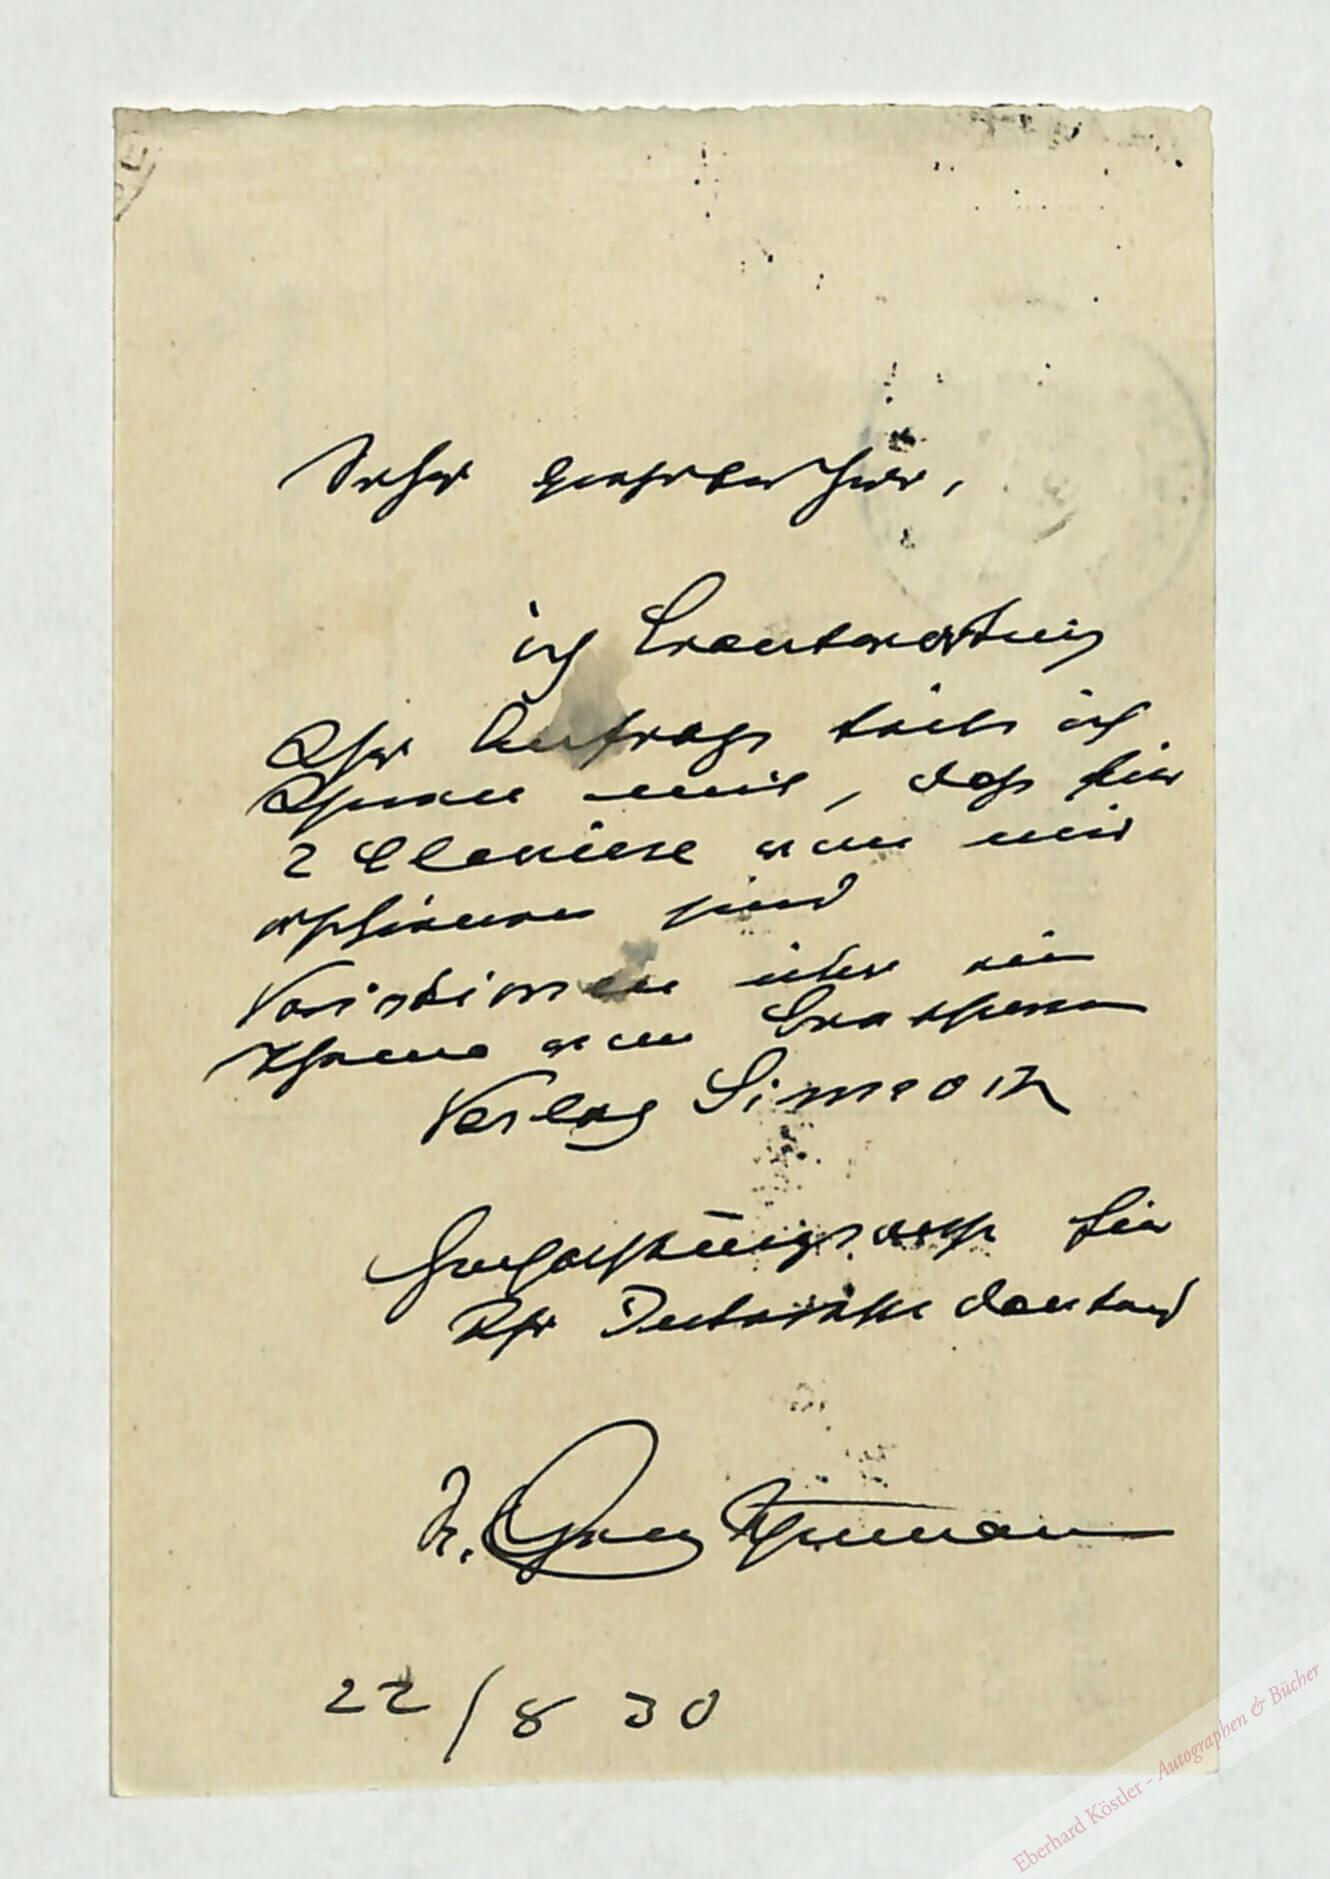 Sehr geehrter Herr,
in Beantwortung
Ihrer Anfrage teile ich
Ihnen mit, dass für
2 Claviere von mir
erschienen sind
Variationen über ein
Thema von Beethoven
Verlag Simrock
Hochachtungsvoll für
Ihr Interesse dankend
Dr. Georg Schumann
22/8 30
Eberhard Köstler - Autographen & Bücher